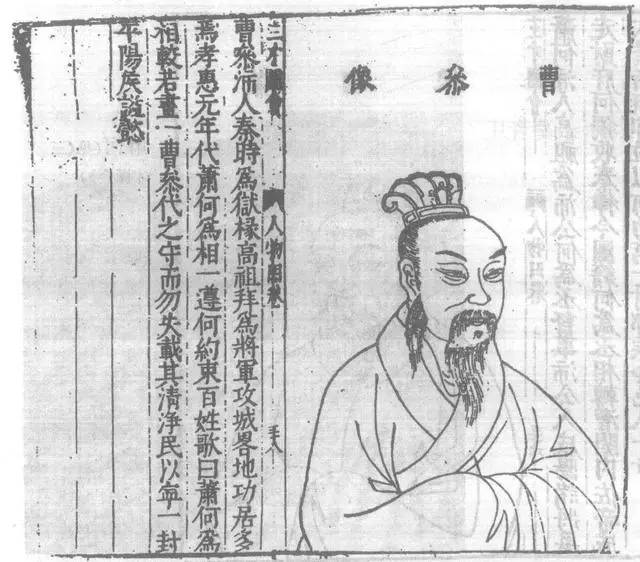 曹叅像
三才圖會
人物四卷
曹叅沛人秦時為獄椽高祖拜為將軍攻城畧地功居多
焉孝惠元年代蕭何為相一遵何約束百姓歌曰蕭何為
相較若畫一曹叅代之守而勿失載其清淨民以寧一封
平陽侯謚懿